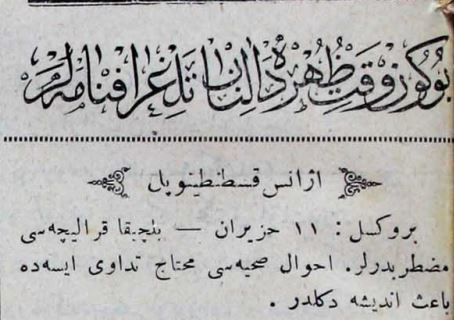 بوكون وقت ظهرده آلنان تلغرافنامه لر
اژانس قسطنطينوپل
بروكسل : ١١ حزيران — بلچيقا قراليچه سى
مضطربدرلر. احوال صحيه سى محتاج تداوى ايسه ده
باعث انديشه دكلدر .